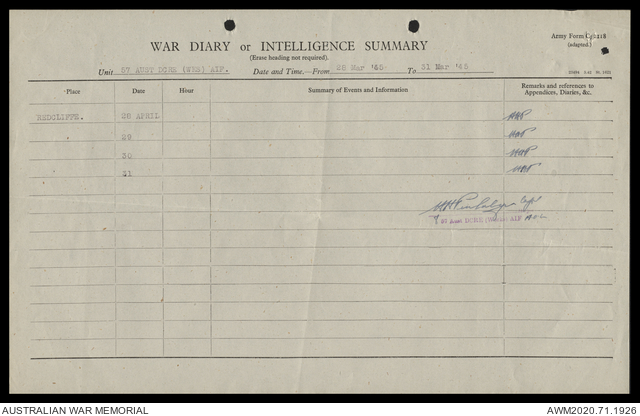 Army Form C2118
(adapted.)
WAR DIARY or INTELLIGENCE SUMMARY
(Erase heading not required).
Unit 57 AUST DCRE (WKS) AIF. Date and Time.—From 28 Mar '45 To 31 Mar '45
Place Date Hour Summary of Events and Information Remarks and references to Appendices, Diaries, &c.
REDCLIFFE. 28 APRIL
29
30
31
Capt
57 Aust DCRE (Works) AIF
AUSTRALIAN WAR MEMORIAL AWM2020.71.1926